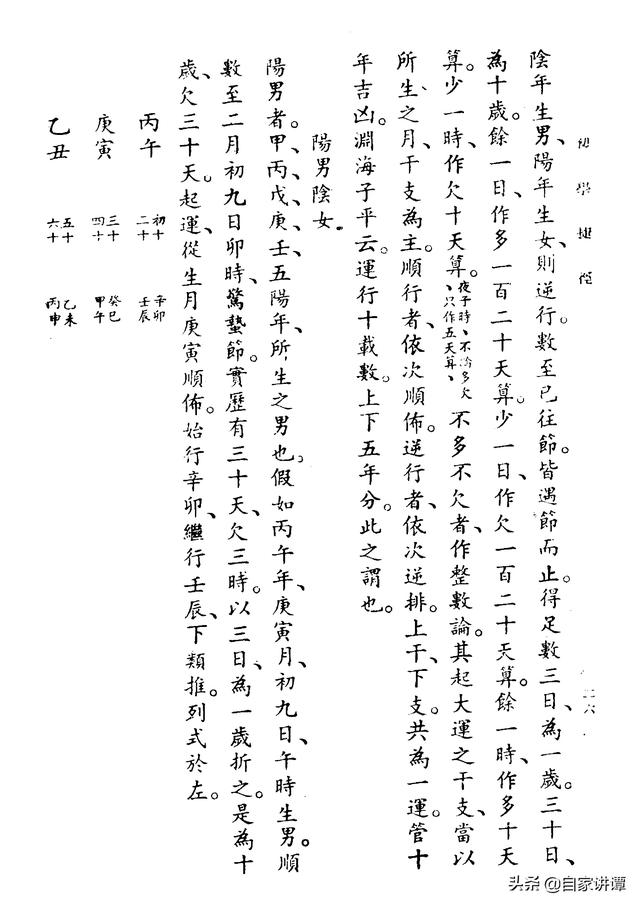 初學捷徑
二六
陰年生男、陽年生女、則逆行。數至已往節。皆遇節而止。得足數三日、為一歲。三十日、
為十歲。餘一日、作多一百二十天算。少一日、作欠一百二十天算。餘一時、作多十天
算。少一時、作欠十天算。夜子時、不論多欠、只作五天算、不多不欠者、作整數論。其起大運之干支、當以
所生之月、干支為主。順行者、依次順佈。逆行者、依次逆排。上干、下支。共為一運。管十
年吉凶。淵海子平云。運行十載數。上下五年分。此之謂也。
陽男陰女。
陽男者。甲、丙、戊、庚、壬、五陽年、所生之男也。假如丙午年、庚寅月、初九日、午時生男。順
數至二月初九日卯時、驚蟄節。實歷有三十天、欠三時。以三日、為一歲折之。是為十
歲、欠三十天。起運、從生月庚寅順佈。始行辛卯、繼行壬辰、下類推。列式於左。
丙午 初十 辛卯
二十 壬辰
庚寅 三十 癸巳
四十 甲午
乙丑 五十 乙未
六十 丙申
头条 @自家讲谭